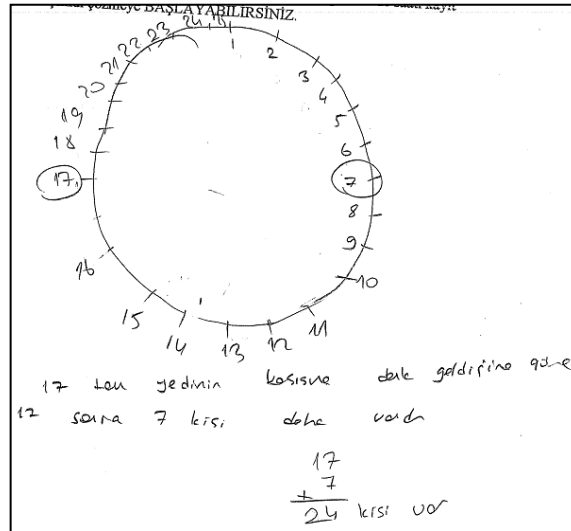 BAŞLAYABİLİRSİNİZ.
1
2
3
4
5
6
7
8
9
10
11
12
13
14
15
16
17
18
19
20
21
22
23
24
17 den yedinin karşısına denk geldiğine göre
17 sonra 7 kişi daha vardır
17
+ 7
24 kişi var